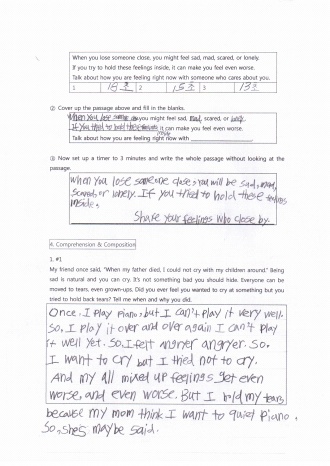 When you lose someone close, you might feel sad, mad, scared, or lonely.
If you try to hold these feelings inside, it can make you feel even worse.
Talk about how you are feeling right now with someone who cares about you.
1 18초 2 15초 3 13초
② Cover up the passage above and fill in the blanks.
When you lose someone close, you might feel sad, mad, scared, or lonely.
If you tried to hold these inside, it can make you feel even worse.
Talk about how you are feeling right now with
③ Now set up a timer to 3 minutes and write the whole passage without looking at the
passage.
When you lose someone close, you will be sad, mad,
scared, or lonely. If you tried to hold these feelings
inside,
Share your feelings who close by.
4. Comprehension & Composition
1. #1
My friend once said, "When my father died, I could not cry with my children around." Being
sad is natural and you can cry. It's not something bad you should hide. Everyone can be
moved to tears, even grown-ups. Did you ever feel you wanted to cry at something but you
tried to hold back tears? Tell me when and why you did.
Once, I play piano, but I can't play it very well.
So, I play it over and over again I can't play
it well yet. So, I felt angryer angryer. So,
I want to cry but I tried not to cry.
And my all mixed up feelings get even
worse, and even worse. But I hold my tears,
because my mom think I want to quiet piano,
So, shes maybe said.